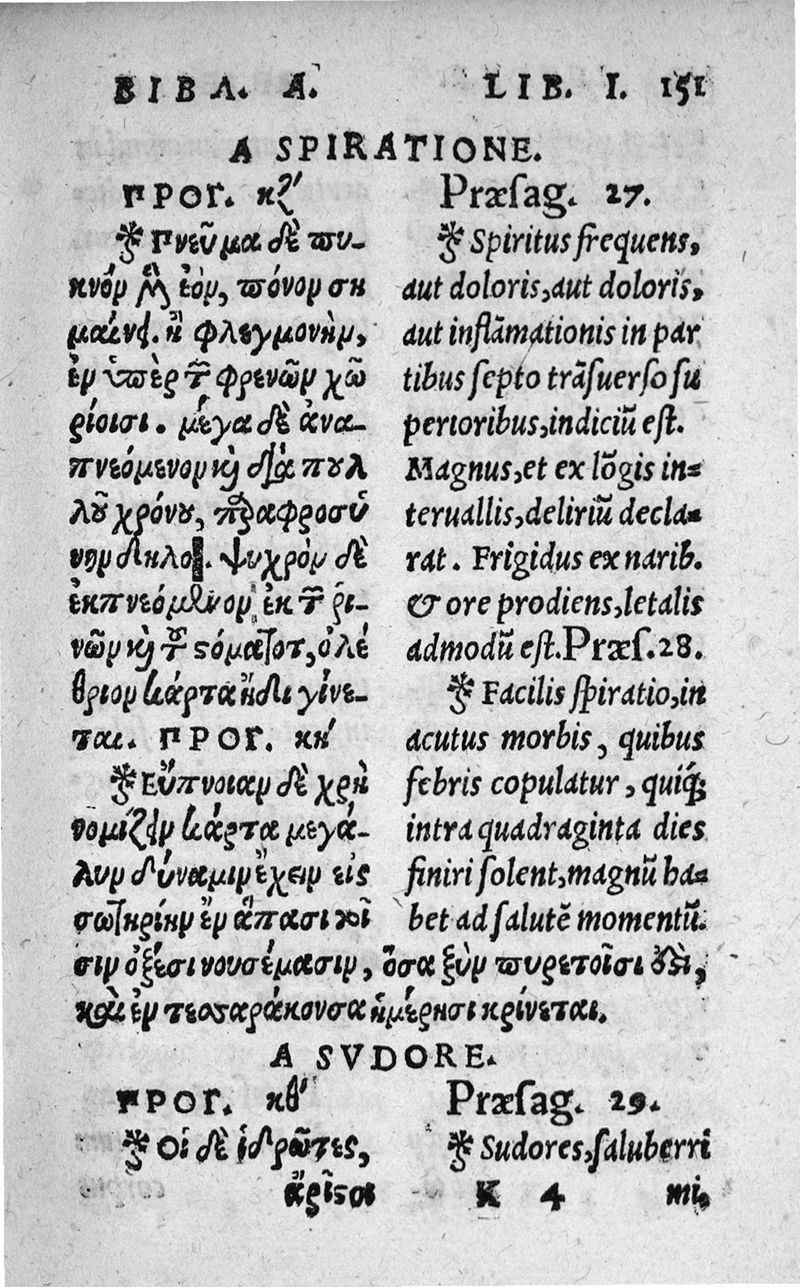 ΒΙΒΛ. Α. LIB. I. 151
A SPIRATIONE.
ΠΡΟΓ. κζ'
❧ Πνεῦμα δὲ πυ-
κνὸν μὲν ἐὸν, πόνον ση
μαίνει. ἢ φλεγμονὴν,
ἐν ὑπὲρ τῶν φρενῶν χω
ρίοισι. μέγα δὲ ἀνα-
πνεόμενον καὶ διὰ πολ
λοῦ χρόνου, παραφροσύ
νην δηλοῖ. ψυχρὸν δὲ
ἐκπνεόμενον ἐκ τῶν ῥι-
νῶν καὶ τοῦ στόματος, ὀλέ
θριον κάρτα ἤδη γίνε-
ται. ΠΡΟΓ. κη'
❧ Εὔπνοιαν δὲ χρὴ
νομίζειν κάρτα μεγά-
λην δύναμιν ἔχειν εἰς
σωτηρίην ἐν ἅπασι τοῖ
σιν ὀξέσι νουσέμασιν, ὅσα ξὺν πυρετοῖσί ἐστι,
καὶ ἐν τεσσαράκονσα ἡμέρησι κρίνεται.
Præſag. 27.
❧ Spiritus frequens,
aut doloris, aut doloris,
aut inflāmationis in par
tibus ſepto trāſuerſo ſu
perioribus, indiciū eſt.
Magnus, et ex lōgis in-
teruallis, deliriū decla-
rat. Frigidus ex narib.
& ore prodiens, letalis
admodū eſt. Præſ. 28.
❧ Facilis ſpiratio, in
acutus morbis, quibus
febris copulatur, quiq́;
intra quadraginta dies
finiri ſolent, magnū ha-
bet ad ſalutē momentū.
A SVDORE.
ΠΡΟΓ. κθ'
❧ Οἱ δὲ ἱδρῶτες,
ἄριστοι
Præſag. 29.
❧ Sudores, ſaluberri
K 4 mi,